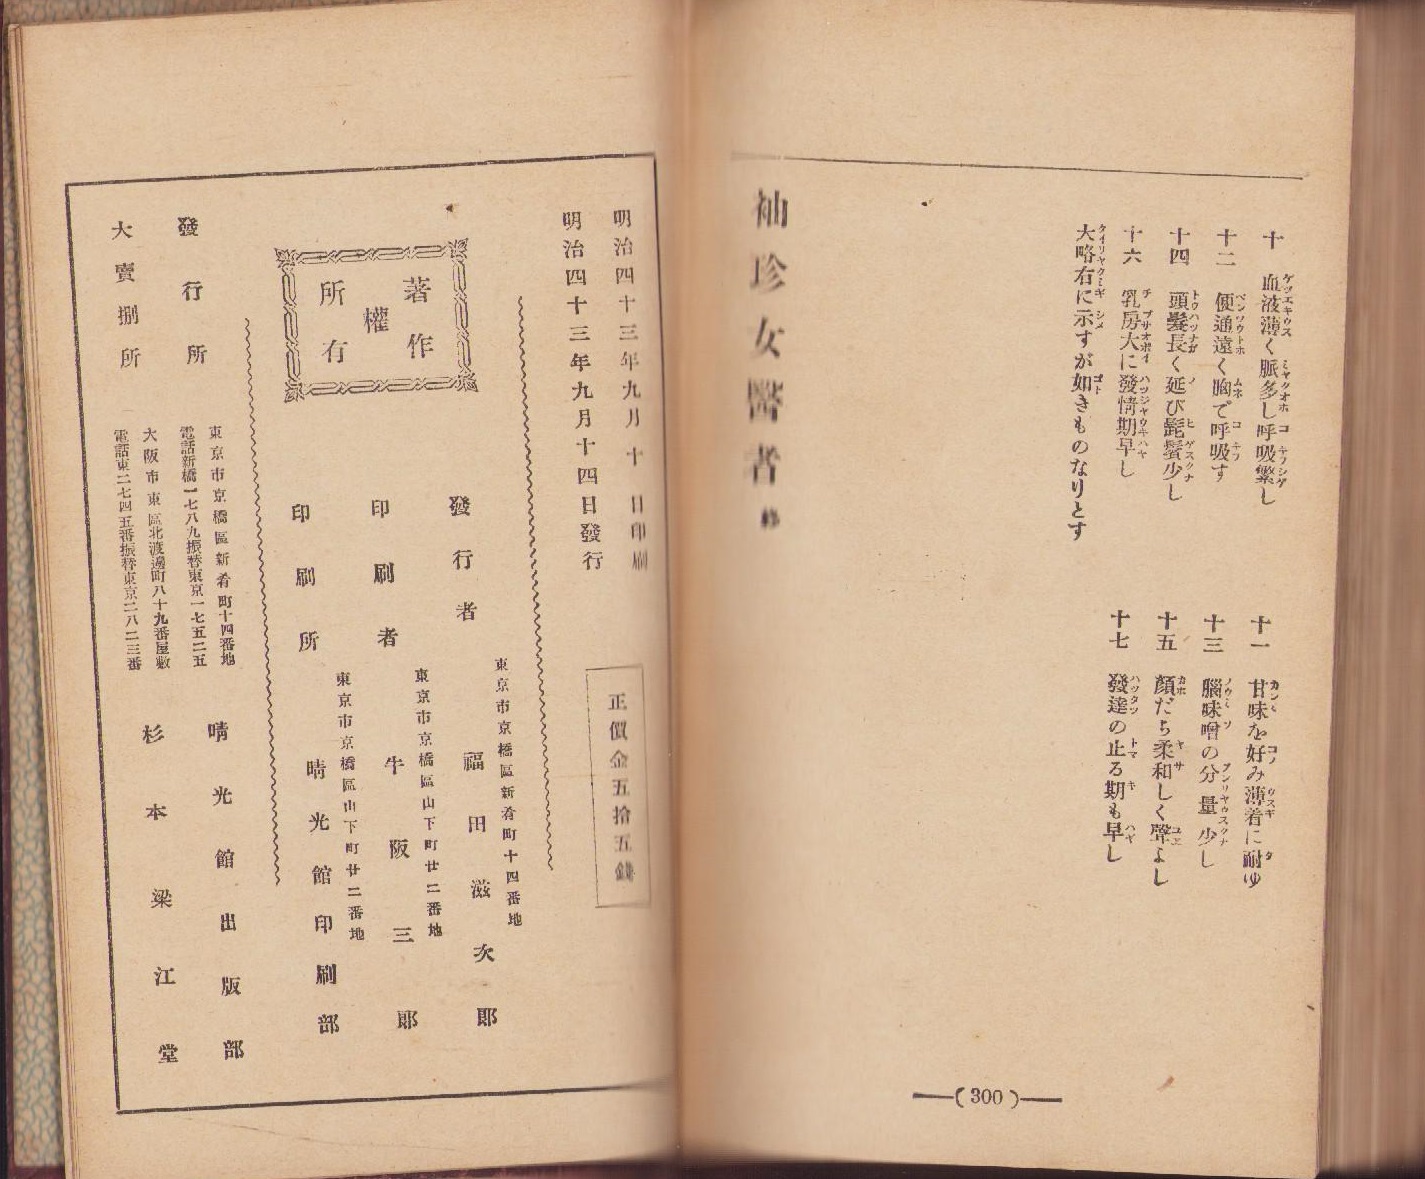 十 血液薄く脈多し呼吸繁し
十一 甘味を好み薄着に耐ゆ
十二 便通遠く胸で呼吸す
十三 腦味噌の分量少し
十四 頭髮長く延び髭鬚少し
十五 顏だち柔和しく聲よし
十六 乳房大に發情期早し
十七 發達の止る期も早し
大略右に示すが如きものなりとす
袖珍女醫者 終
(300)
明治四十三年九月十日印刷
明治四十三年九月十四日發行
正價金五拾五錢
著作
權
所有
發行者 東京市京橋區新肴町十四番地 福田滋次郎
印刷者 東京市京橋區山下町廿二番地 牛阪三郎
印刷所 東京市京橋區山下町廿二番地 晴光館印刷部
發行所 東京市京橋區新肴町十四番地
電話新橋一七八九振替東京一七五二五
晴光館出版部
大賣捌所 大阪市東區北渡邊町八十九番屋敷
電話東二七四五番振替東京二八二三番
杉本梁江堂